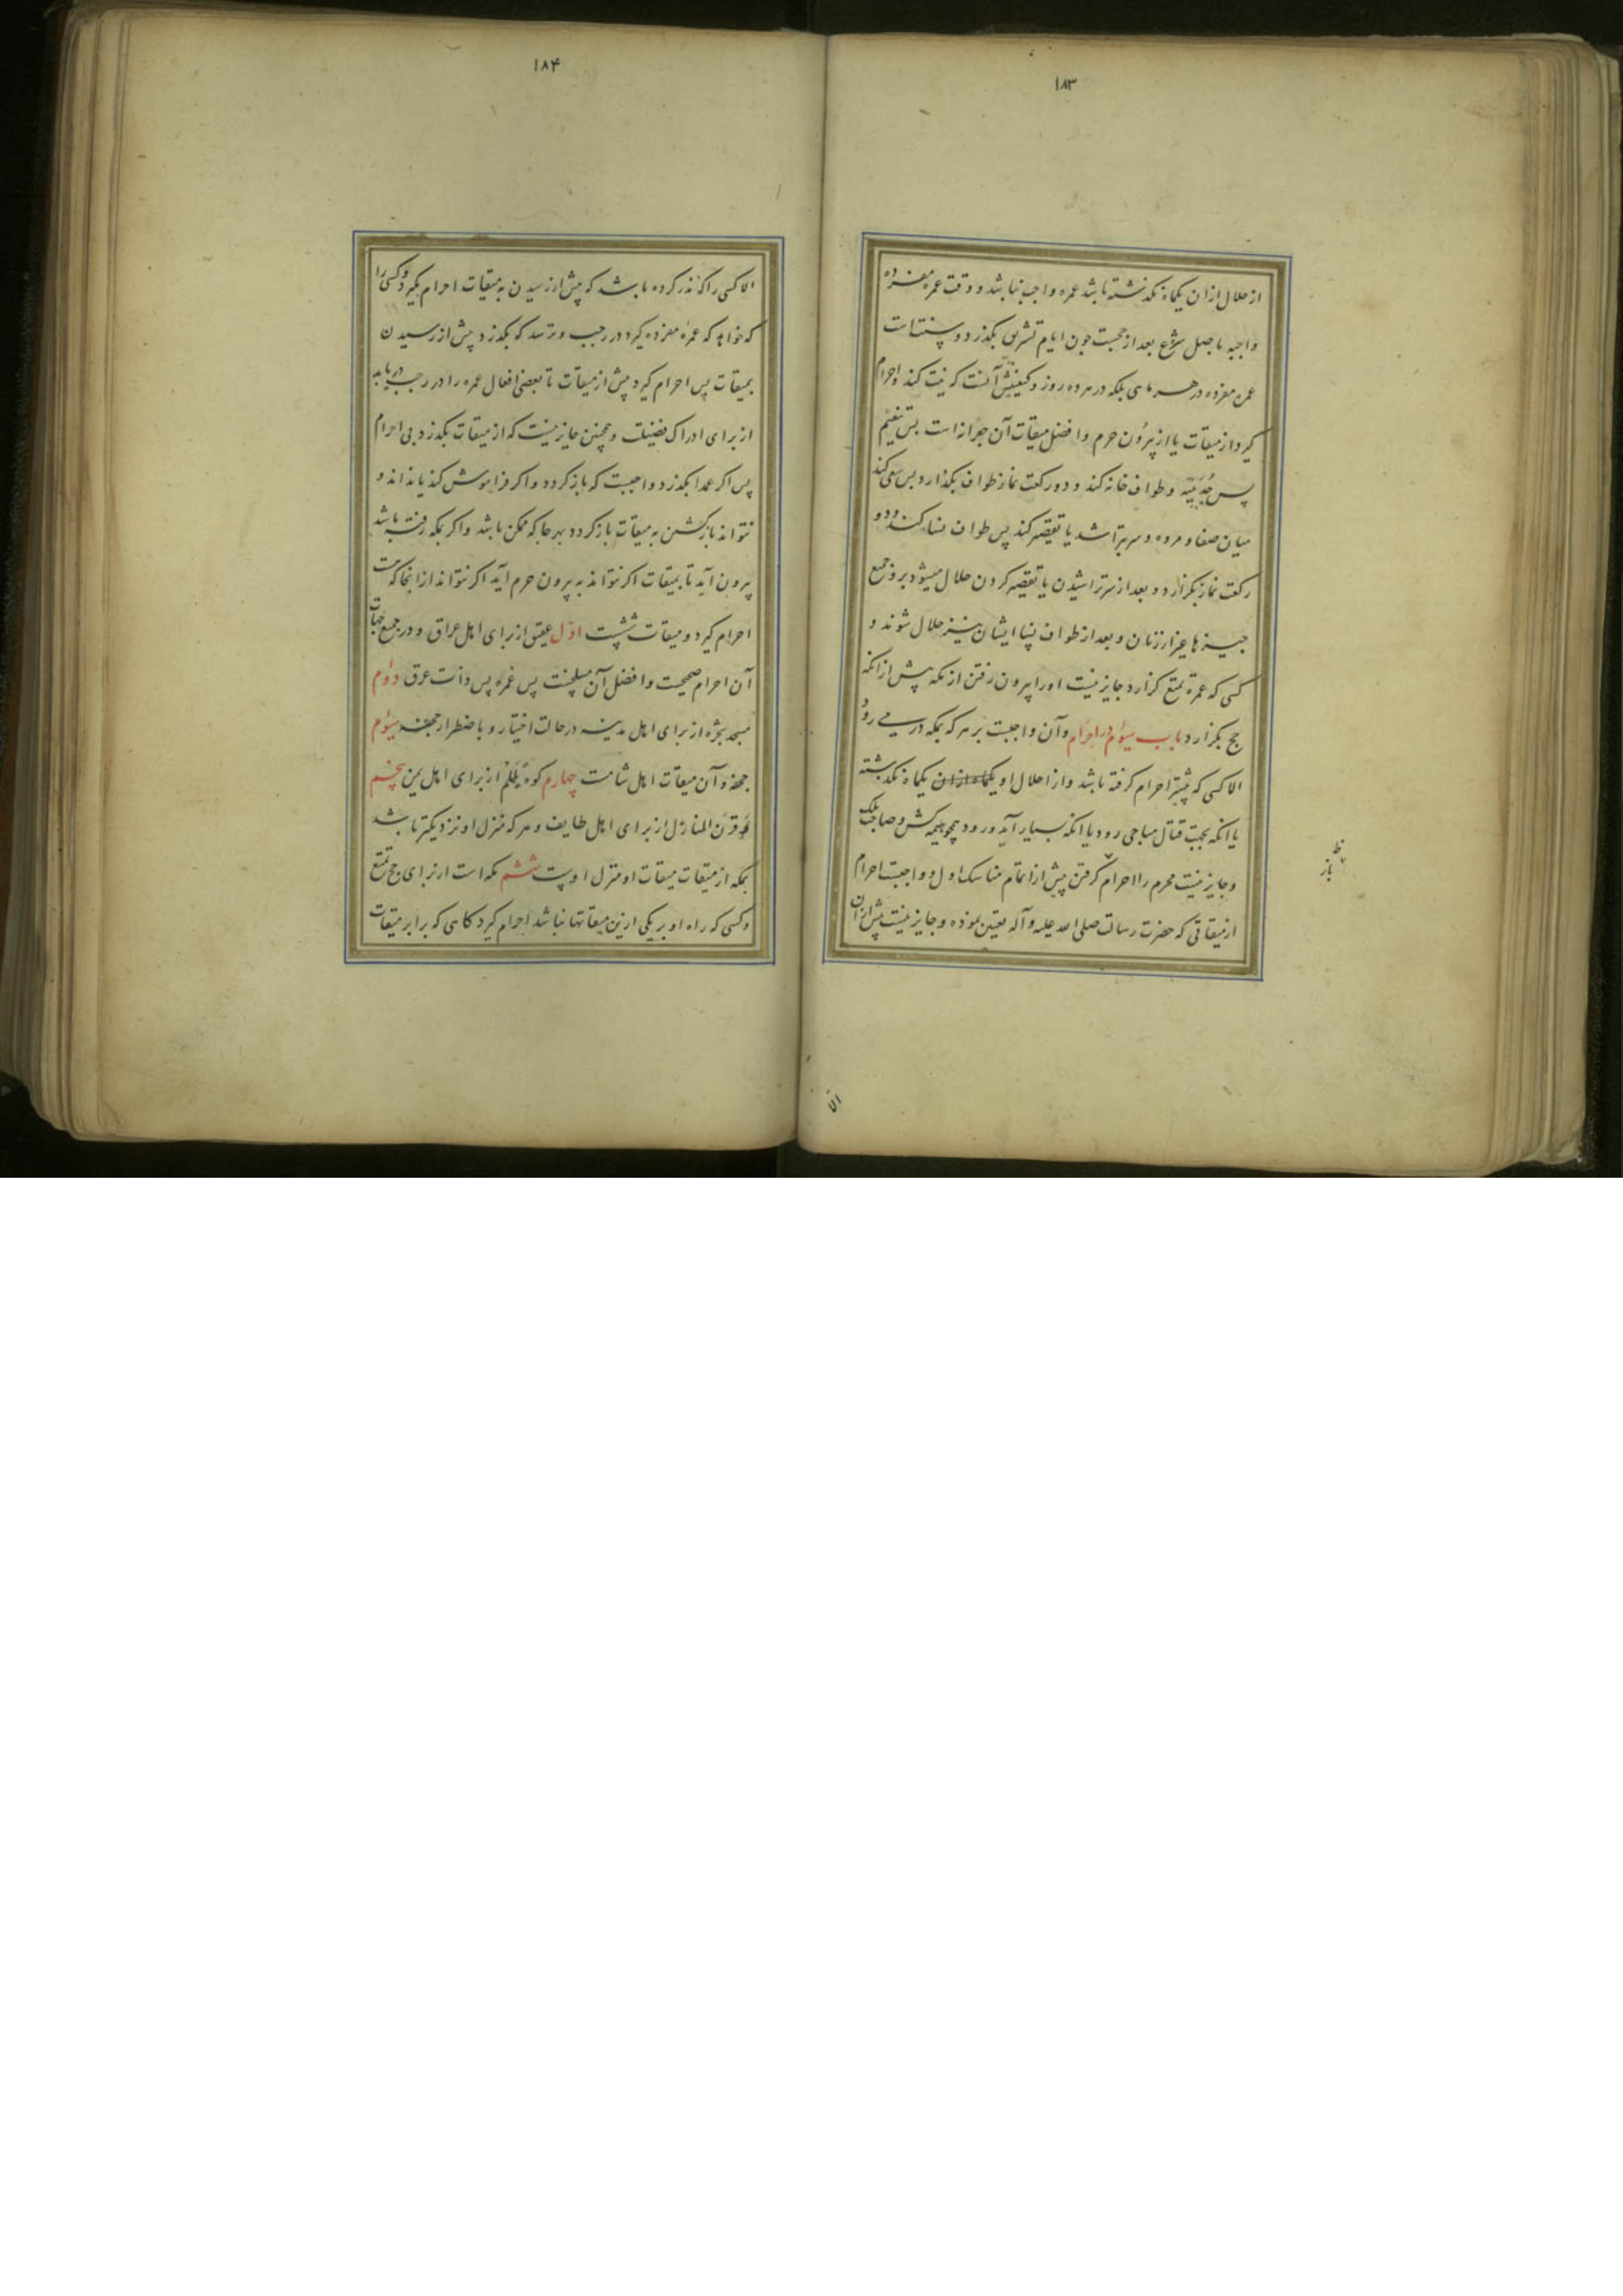 ۱۸۳
از حلال ازان یکماه نگذشته باشد عمره واجب نباشد و وقت عمره مفرده
واجبه باصل شرع بعد از حجست چون ایام تشریق بگذرد و سنتست
عمره مفرده در هر ماهی بلکه در هر ده روز و کیفیتش آنست که نیت کند و احرام
گیرد از میقات یا از بیرون حرم و افضل میقات آن جعرانه است پس تنعیم
پس حُدَیبیه و طواف خانه کند و دو رکعت نماز طواف بگذارد پس سعی کند
میان صفا و مروه و سر بتراشد یا تقصیر کند پس طواف نسا کند و دو
رکعت نماز بگزارد و بعد از سر تراشیدن یا تقصیر کردن حلال میشود برو جمیع
چیزها غیر از زنان و بعد از طواف نسا ایشان نیز حلال شوند و
کسی که عمره تمتع گزارد جایز نیست او را بیرون رفتن از مکه پیش از انکه
حج بگزارد باب سیوم در احرام و آن واجبست بر هر که بمکه در می رود
الا کسی که پیشتر احرام گرفته باشد و از احلال او یکماه ازان یکماه نگذشته
یا انکه بجهت قتال مباحی رود یا انکه بسیار آید و رود همچو هیمه کش و صاحب ملک
و جایز نیست محرم را احرام گرفتن پیش از اتمام مناسک اول و واجبست احرام
از میقاتی که حضرت رسالت صلی الله علیه و آله تعیین نموده و جایز نیست پیش ازان
باز
الا
۱۸۴
الا کسی را که نذر کرده باشد که پیش از رسیدن به میقات احرام بگیرد و کسی را
که خواهد که عمره مفرده گیرد در رجب و ترسد که بگذرد پیش از رسیدن
بمیقات پس احرام گیرد پیش از میقات تا بعضی افعال عمره را در رجب دریابد
از برای ادراک فضیلت و همچنین جایز نیست که از میقات بگذرد بی احرام
پس اگر عمدا بگذرد واجبست که باز گردد و اگر فراموش کند یا نداند و
نتواند بازگشتن به میقات باز گردد بهر جا که ممکن باشد و اگر بمکه رفته باشد
بیرون آید تا بمیقات اگر نتواند به بیرون حرم آید اگر نتواند از انجا که هست
احرام گیرد و میقات ششست اول عقیق از برای اهل عراق و در جمیع جهات
آن احرام صحیحست و افضل آن مسلخست پس غمره پس ذات عرق دوم
مسجد شجره از برای اهل مدینه در حالت اختیار و باضطرار جحفه سیوم
جحفه و آن میقات اهل شامست چهارم کوه یَلَملَم از برای اهل یمن پنجم
قرن المنازل از برای اهل طایف و هر که منزل او نزدیکتر باشد
بمکه از میقات میقات او منزل اوست ششم مکه است از برای حج تمتع
و کسی که راه او بر یکی ازین میقاتها نباشد احرام گیرد گاهی که برابر میقات